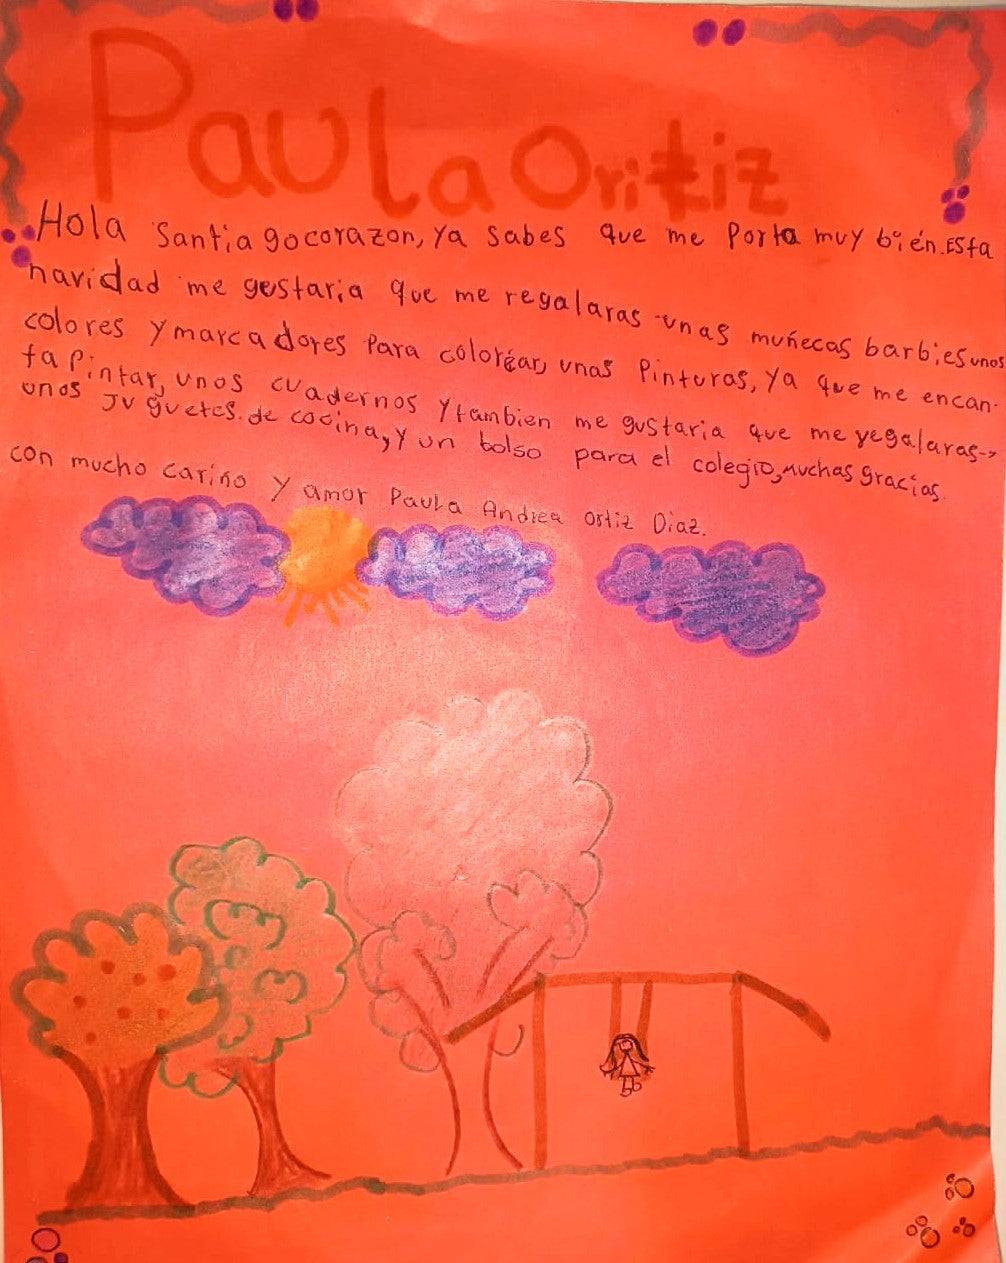 Paula Ortiz
Hola Santiagocorazon, ya sabes que me porta muy bién. Esta
navidad me gustaria que me regalaras unas muñecas barbies unos
colores y marcadores para colorear, unas pinturas, ya que me encan-
ta pintar, unos cuadernos y tambien me gustaria que me regalaras->
unos juguetes de cocina, y un bolso para el colegio, muchas gracias.
con mucho cariño y amor Paula Andrea Ortiz Diaz.